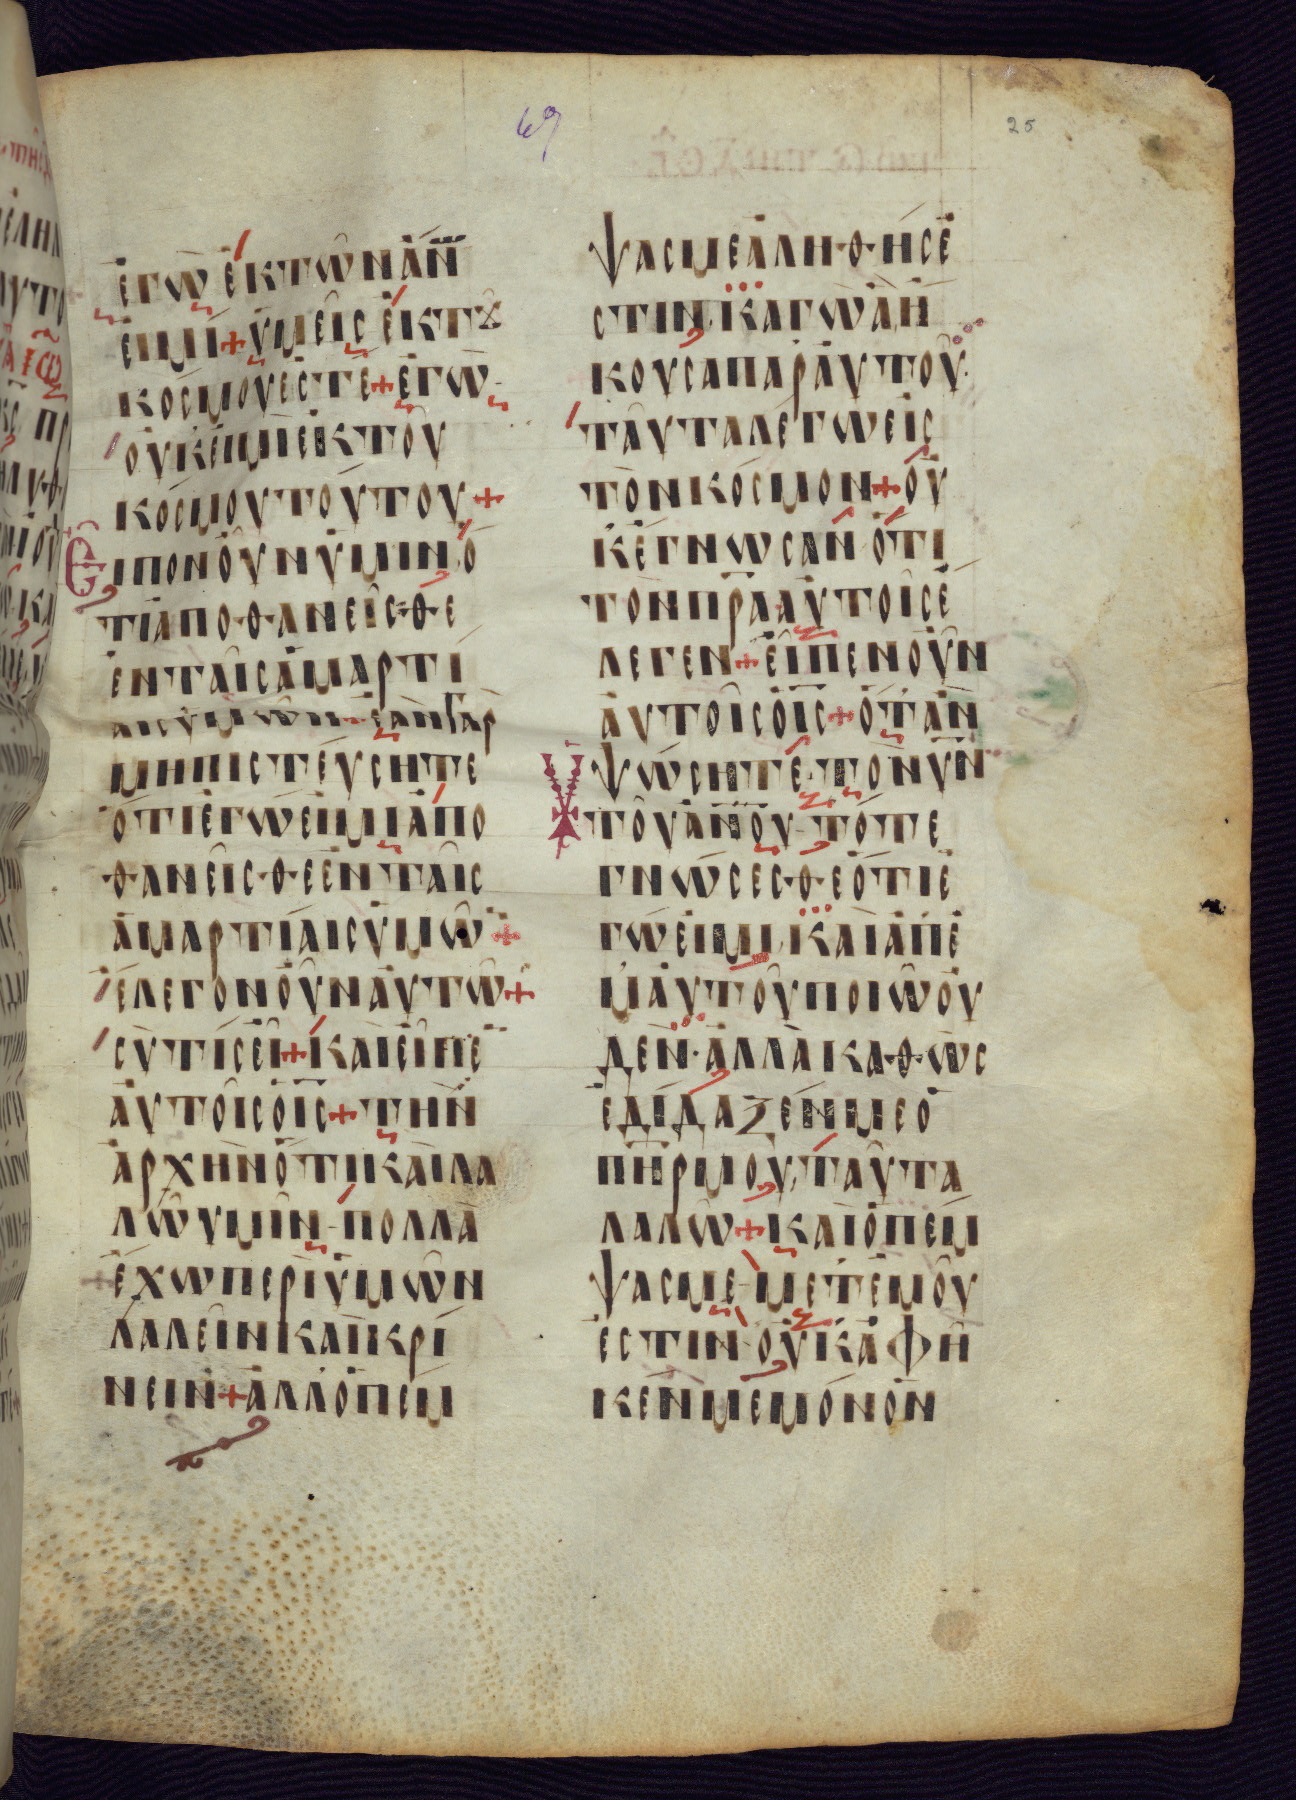 69
25
ἐγὼ ἐκ τῶν ἄν
εἰμί + ὑμεῖς ἐκ τȣ
κόσμου ἐστέ + ἐγὼ
οὐκ εἰμὶ ἐκ τοῦ
κόσμου τούτου +
Εἶπον οὖν ὑμῖν ὅ
τι ἀποθανεῖσθε
ἐν ταῖς ἁμαρτί
αις ὑμῶν + ἐὰν γὰρ
μὴ πιστεύσητε
ὅτι ἐγώ εἰμι ἀπο
θανεῖσθε ἐν ταῖς
ἁμαρτίαις ὑμῶ +
ἔλεγον οὖν αὐτῶ +
σὺ τίς εἶ + καὶ εἶπε
αὐτοῖς ὁ ις + τὴν
ἀρχὴν ὅτι καὶ λα
λῶ ὑμῖν πολλὰ
ἔχω περὶ ὑμῶν
λαλεῖν καὶ κρί
νειν + ἀλλ ὁ πέμ
ψας με ἀληθής ἐ
στιν κἀγὼ ἃ ἤ
κουσα παρ αὐτοῦ
ταῦτα λέγω εἰς
τὸν κόσμον + οὐ
κ ἔγνωσαν ὅτι
τὸν πρα αὐτοῖς ἔ
λεγεν + εἶπεν οὖν
αὐτοῖς ὁ ις + ὅταν
ὑψώσητε τὸν υν
τοῦ ανου τότε
γνώσεσθε ὅτι ἐ
γώ εἰμι καὶ ἀπ ἐ
μαυτοῦ ποιῶ οὐ
δέν ἀλλὰ καθὼς
ἐδίδαξέν με ὁ
πηρ μου ταῦτα
λαλῶ + καὶ ὁ πέμ
ψας με μετ ἐμοῦ
ἐστιν οὐκ ἀφῆ
κέν με μόνον